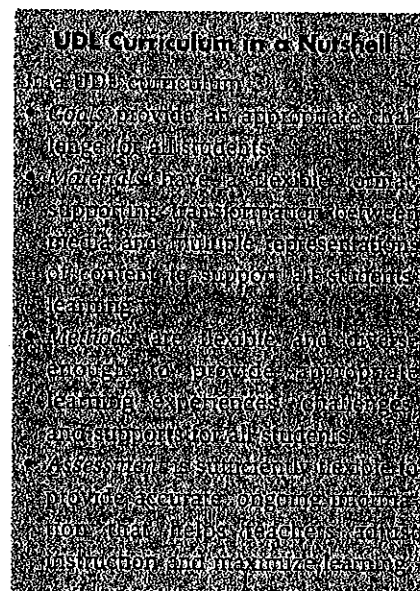 UDL Curriculum in a Nutshell
In a UDL curriculum
• Goals provide an appropriate chal-
lenge for all students
• Materials have a flexible format
supporting transformation between
media and multiple representations
of content to support all students'
learning
• Methods are flexible and diverse
enough to provide appropriate
learning experiences, challenges,
and supports for all students
• Assessment is sufficiently flexible to
provide accurate, ongoing informa-
tion that helps teachers adjust
instruction and maximize learning.